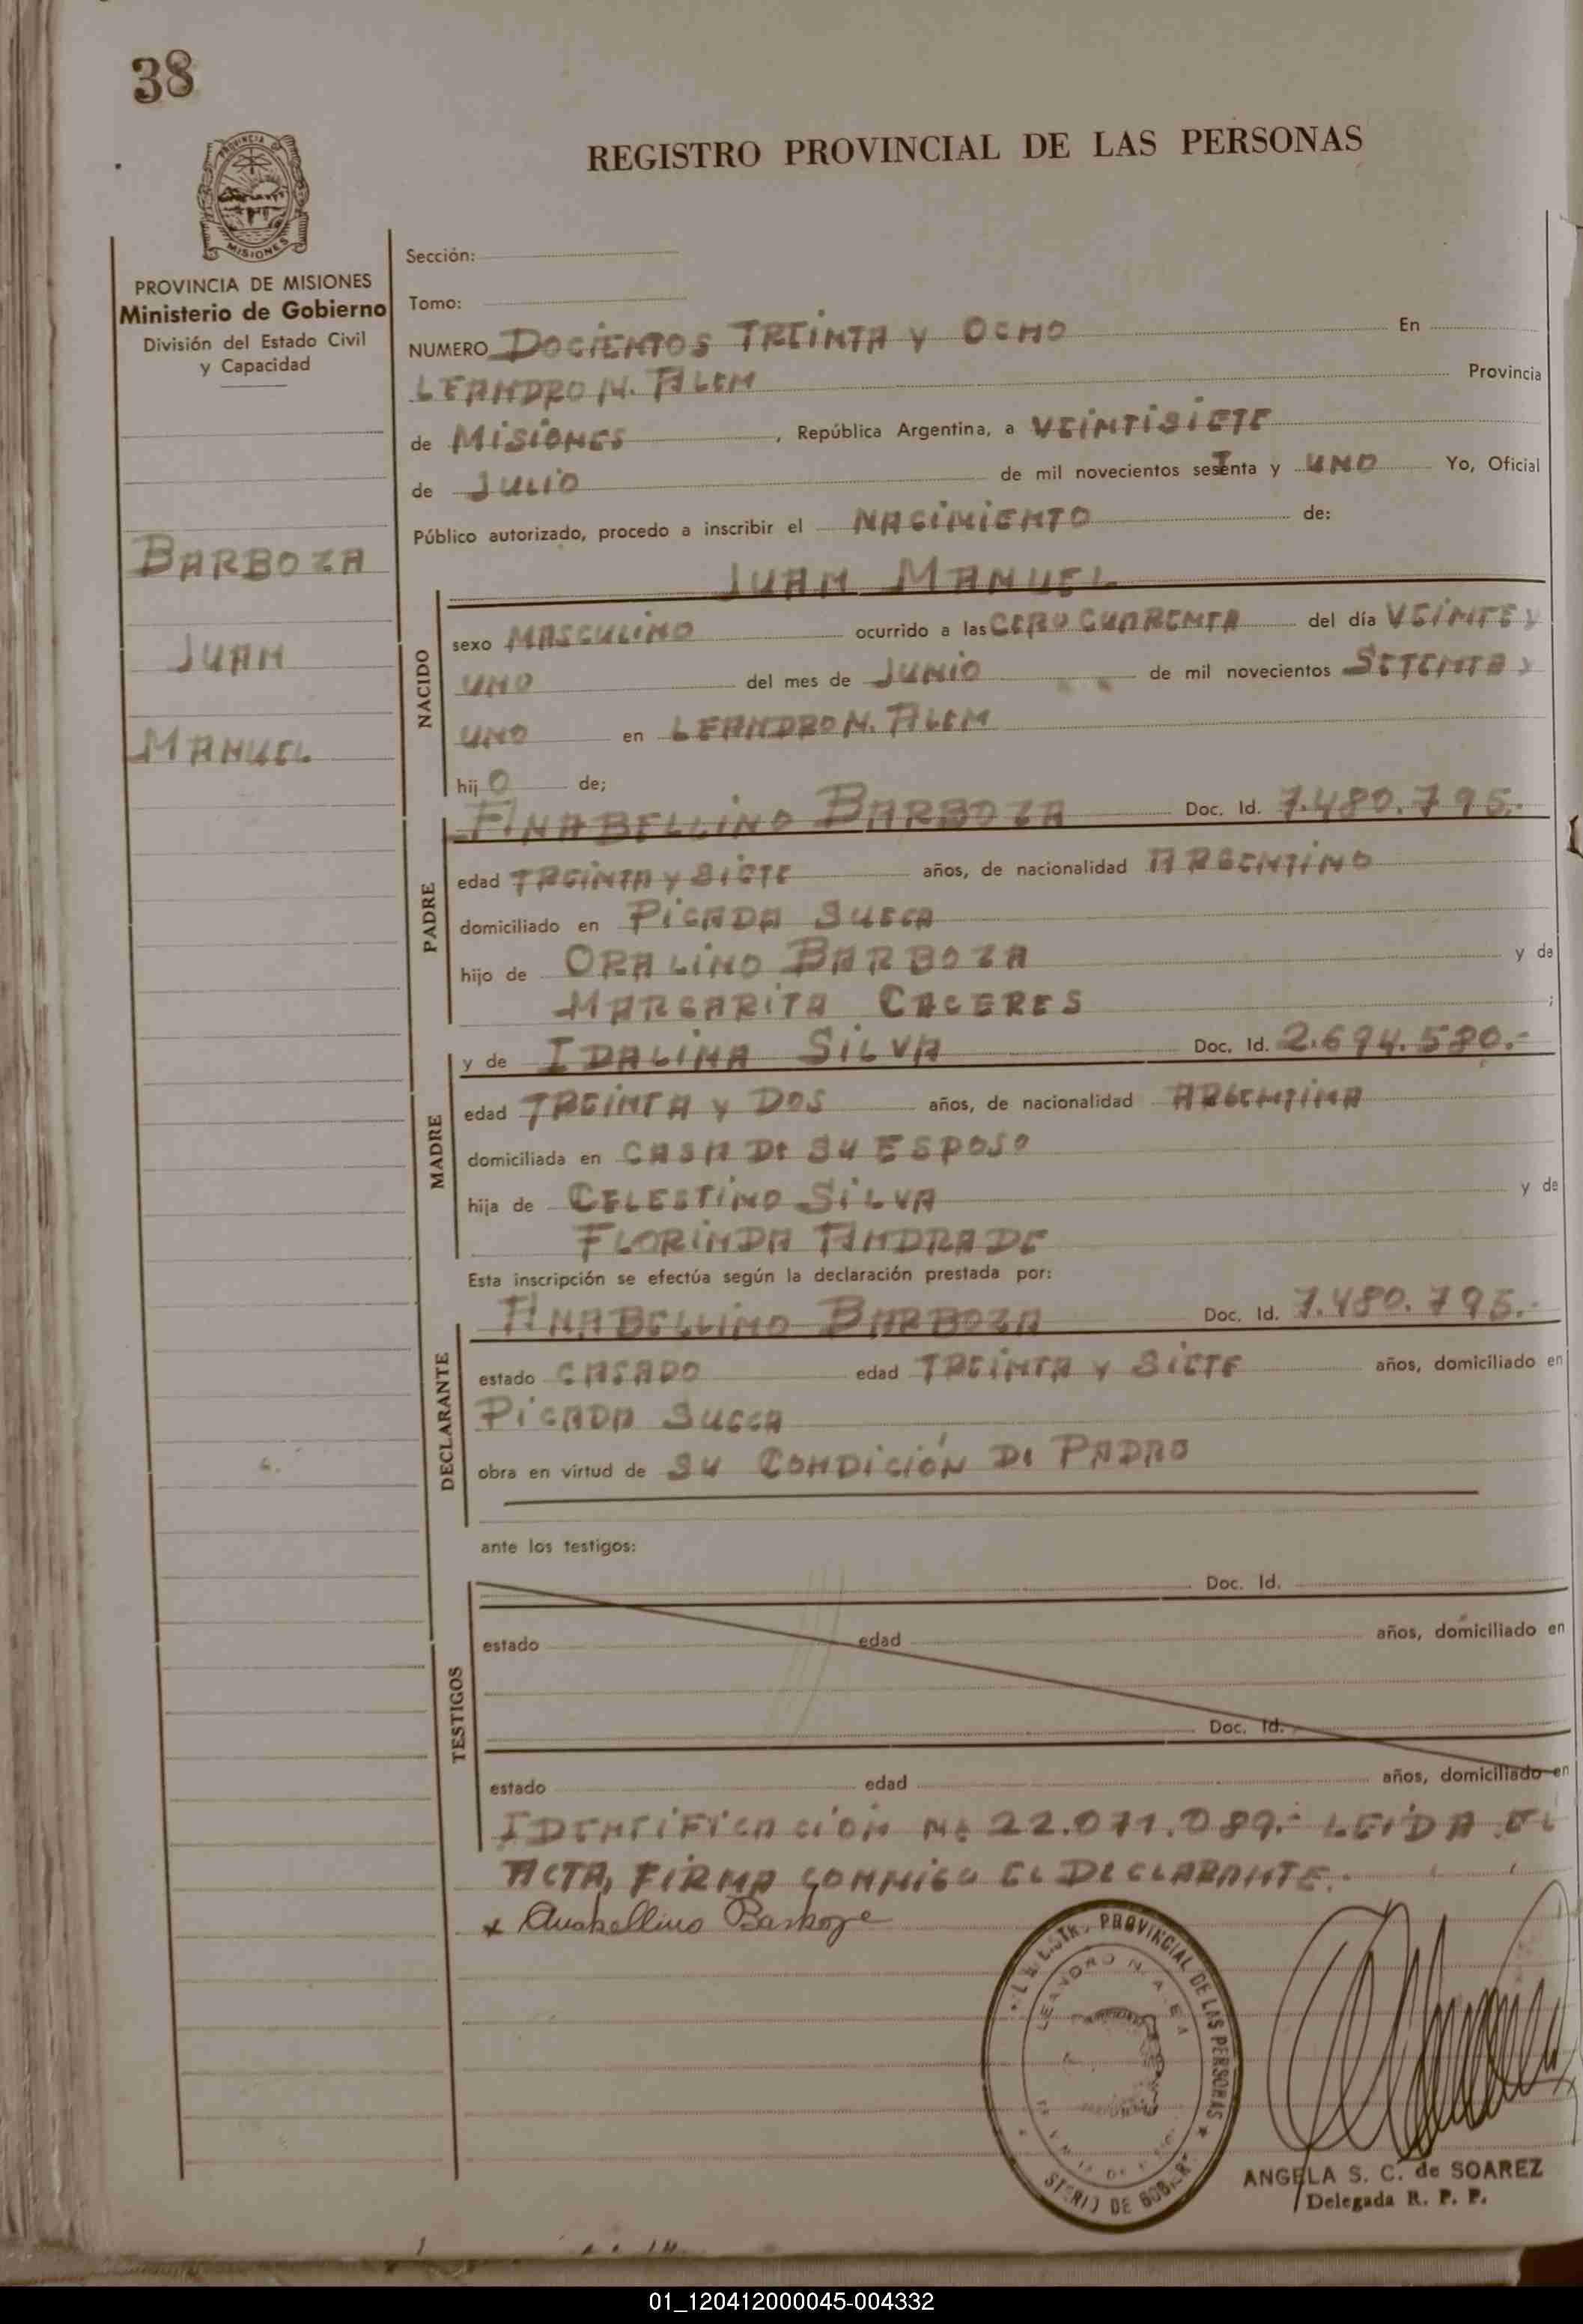 38
PROVINCIA
MISIONES
REGISTRO PROVINCIAL DE LAS PERSONAS
PROVINCIA DE MISIONES
Ministerio de Gobierno
División del Estado Civil
y Capacidad
BARBOZA
JUAN
MANUEL
Sección:
Tomo:
NUMERO DOCIENTOS TREINTA Y OCHO En
LEANDRO N. ALEM Provincia
de MISIONES, República Argentina, a VEINTISIETE
de JULIO de mil novecientos seTenta y UNO Yo, Oficial
Público autorizado, procedo a inscribir el NACIMIENTO de:
JUAN MANUEL
NACIDO
sexo MASCULINO ocurrido a las CERO CUARENTA del día VEINTE Y
UNO del mes de JUNIO de mil novecientos SETENTA Y
UNO en LEANDRO N. ALEM
hijO de;
PADRE
ANABELLINO BARBOZA Doc. Id. 7.480.795.-
edad TREINTA Y SIETE años, de nacionalidad ARGENTINO
domiciliado en PICADA SUECA
hijo de ORALINO BARBOZA y de
MARGARITA CACERES ;
MADRE
y de IDALINA SILVA Doc. Id. 2.694.580.-
edad TREINTA Y DOS años, de nacionalidad ARGENTINA
domiciliada en CASA De SU ESPOSO
hija de CELESTINO SILVA y de
FLORINDA ANDRADE
Esta inscripción se efectúa según la declaración prestada por:
DECLARANTE
ANABELLINO BARBOZA Doc. Id. 7.480.795.-
estado CASADO edad TREINTA Y SIETE años, domiciliado en
PICADA SUECA
obra en virtud de SU CONDICIÓN De PADRO
ante los testigos:
TESTIGOS
Doc. Id.
estado edad años, domiciliado en
Doc. Id.
estado edad años, domiciliado en
IDENTIFICACIÓN Nº 22.071.089.- LEIDA EL
ACTA, FIRMA CONMIGO EL DECLARANTE.-
x Anabellino Barboza
PROVINCIAL DE LAS PERSONAS
LEANDRO N. ALEM
ANGELA S. C. de SOAREZ
Delegada R. P. P.
01_120412000045-004332